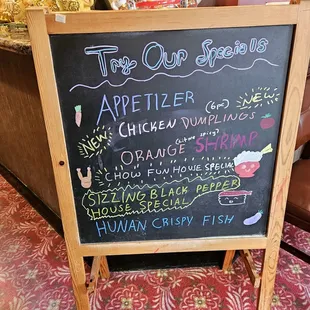 Try Our Specials
APPETIZER
NEW
(6pc)
NEW
CHICKEN DUMPLINGS
ORANGE SHRIMP
CHOW FUN HOUSE SPECIAL
SIZZLING BLACK PEPPER
HOUSE SPECIAL
HUNAN CRISPY FISH